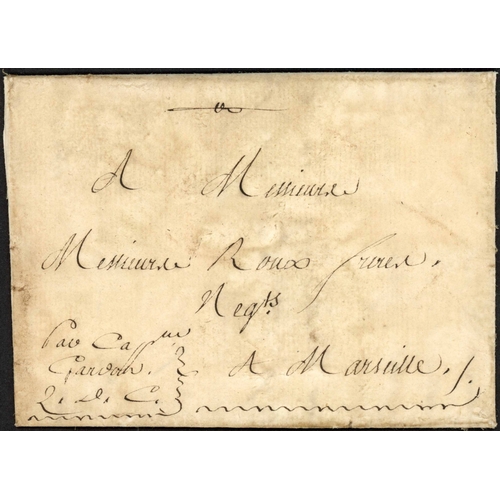 A Messieurs
Messieurs Roux freres.
Negts
A Marseille./.
Par Capne
Gardon.
Q. D. C.